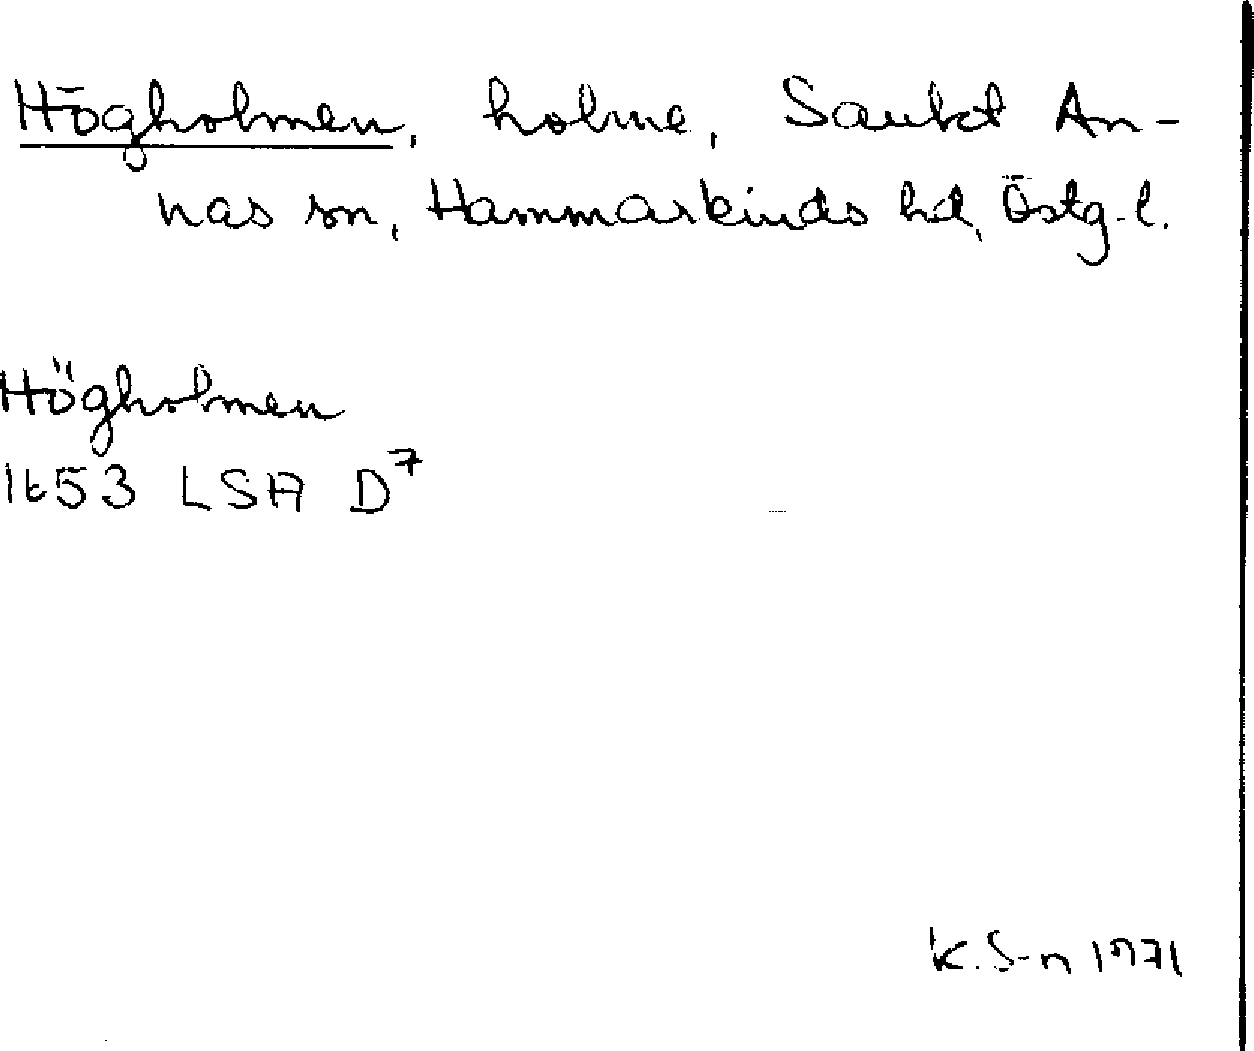 Högholmen, holme, Sankt An-
nas sn, Hammarkinds hd, Östg.l.
Högholmen
1653 LSA D7
K. S-n 1971